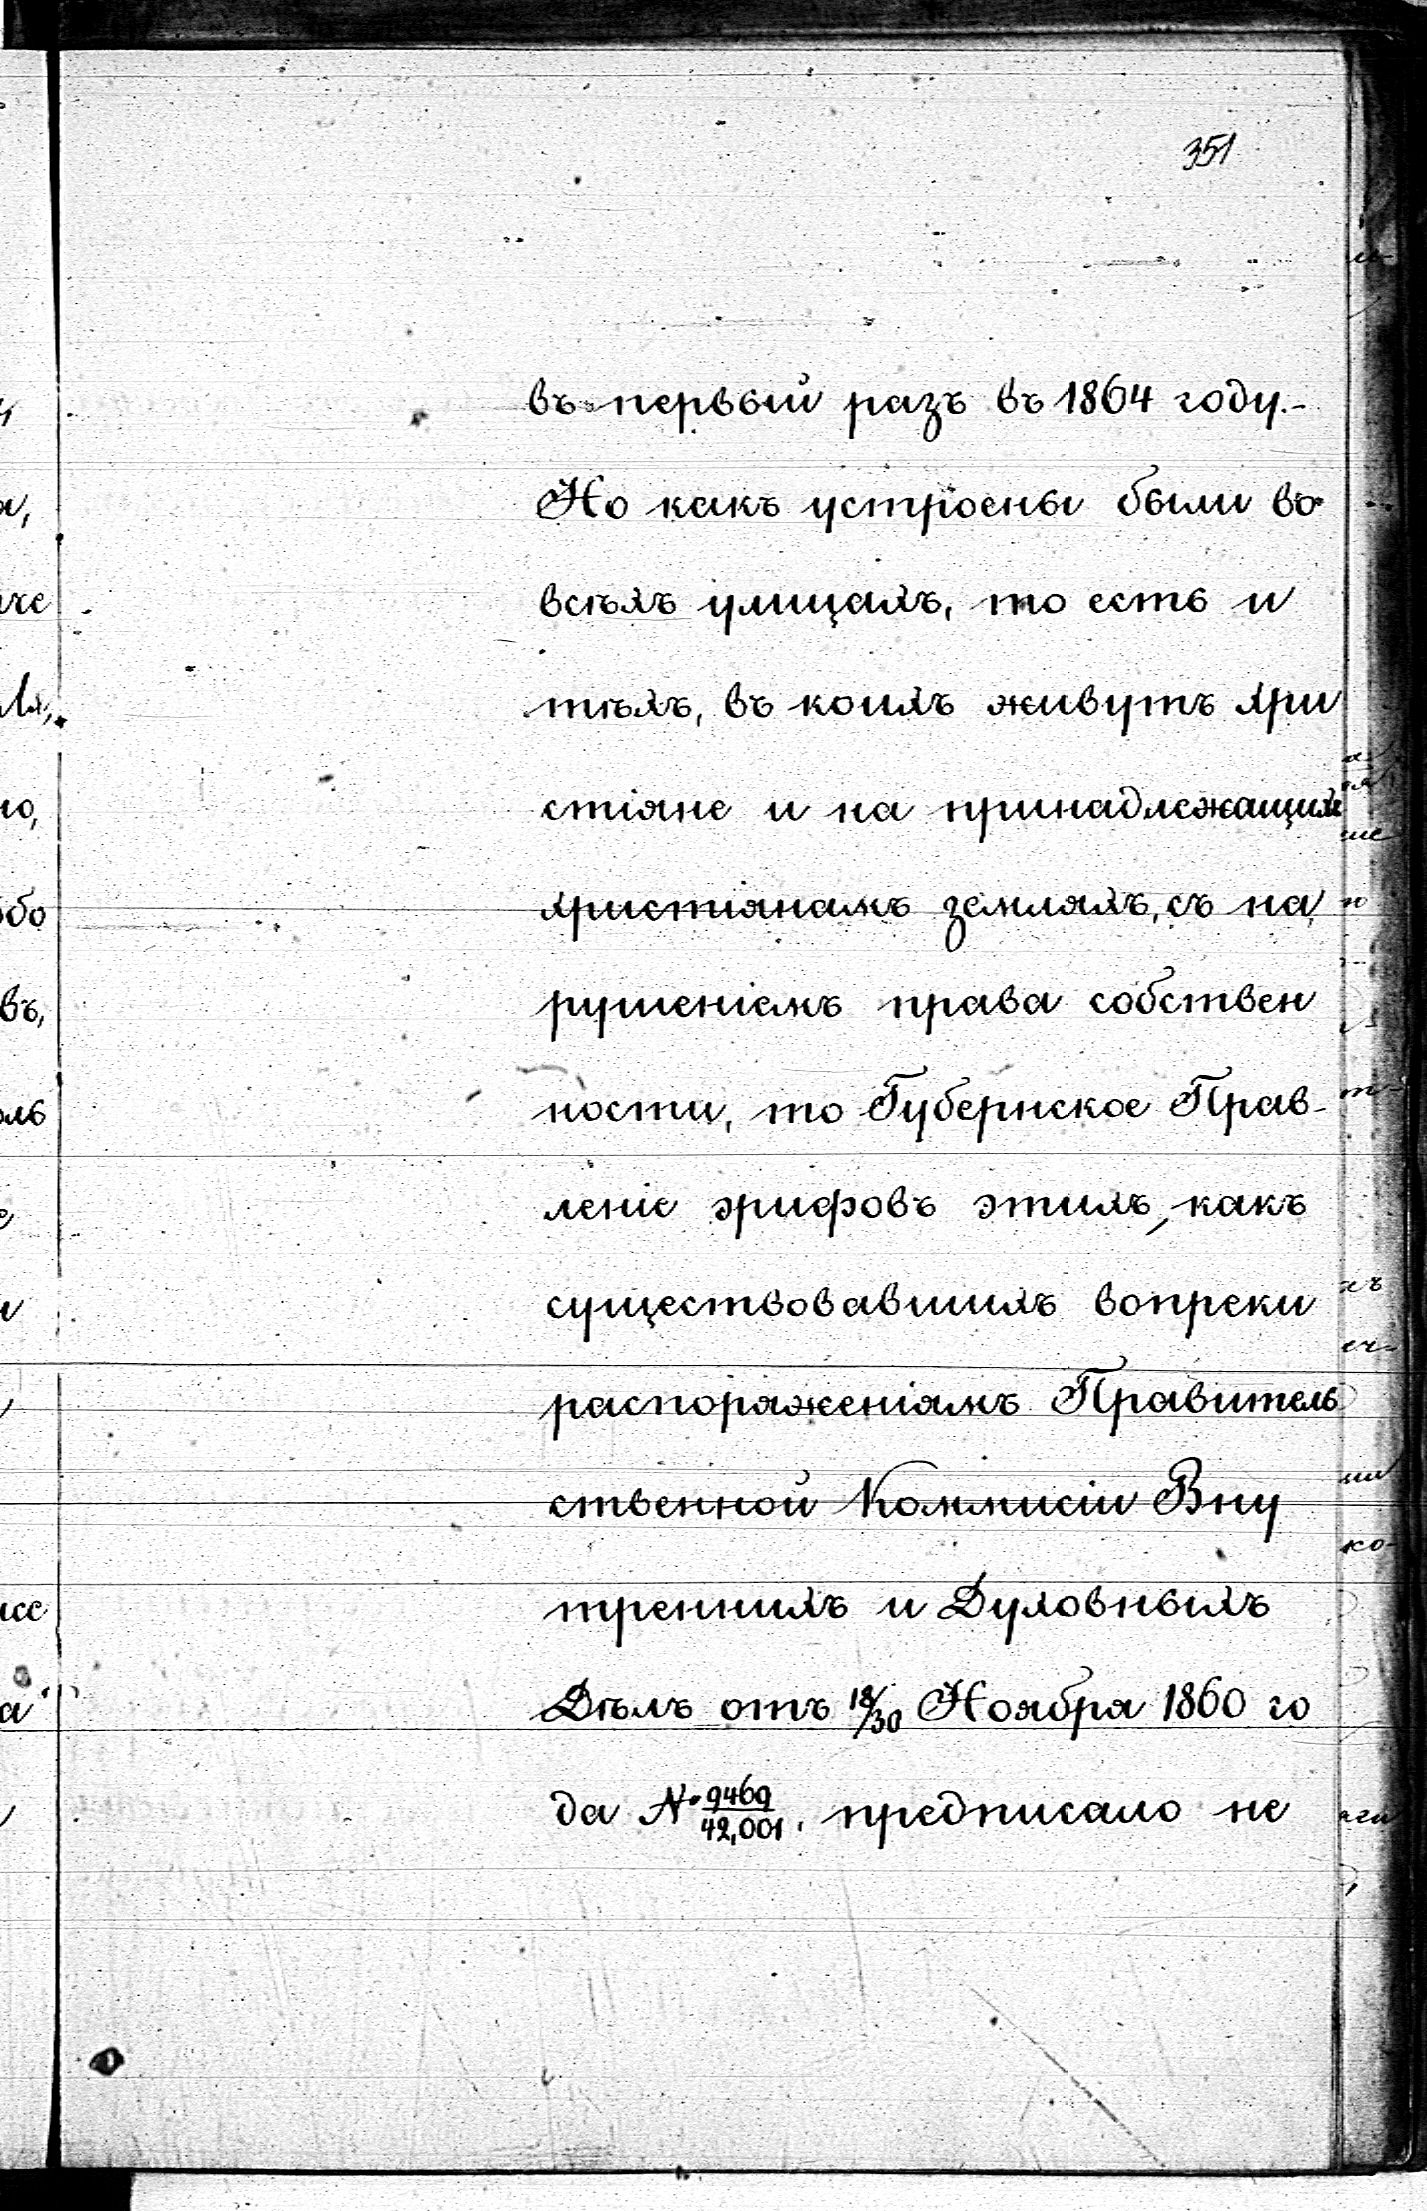 351
въ первый разъ въ 1864 году.-
Но какъ устроены были во
всѣхъ улицахъ, то есть и
тѣхъ, въ коихъ живутъ хри
стіяне и на принадлежащихъ
христіянамъ земляхъ, съ на
рушеніемъ права собствен
ности, то Губернское Прав-
леніе эрифовъ этихъ, какъ
существовавшихъ вопреки
распоряженіямъ Правитель
ственной Коммисіи Вну
треннихъ и Духовныхъ
Дѣлъ отъ 18/30 Ноября 1860 го
да № 9469/42,001. предписало не